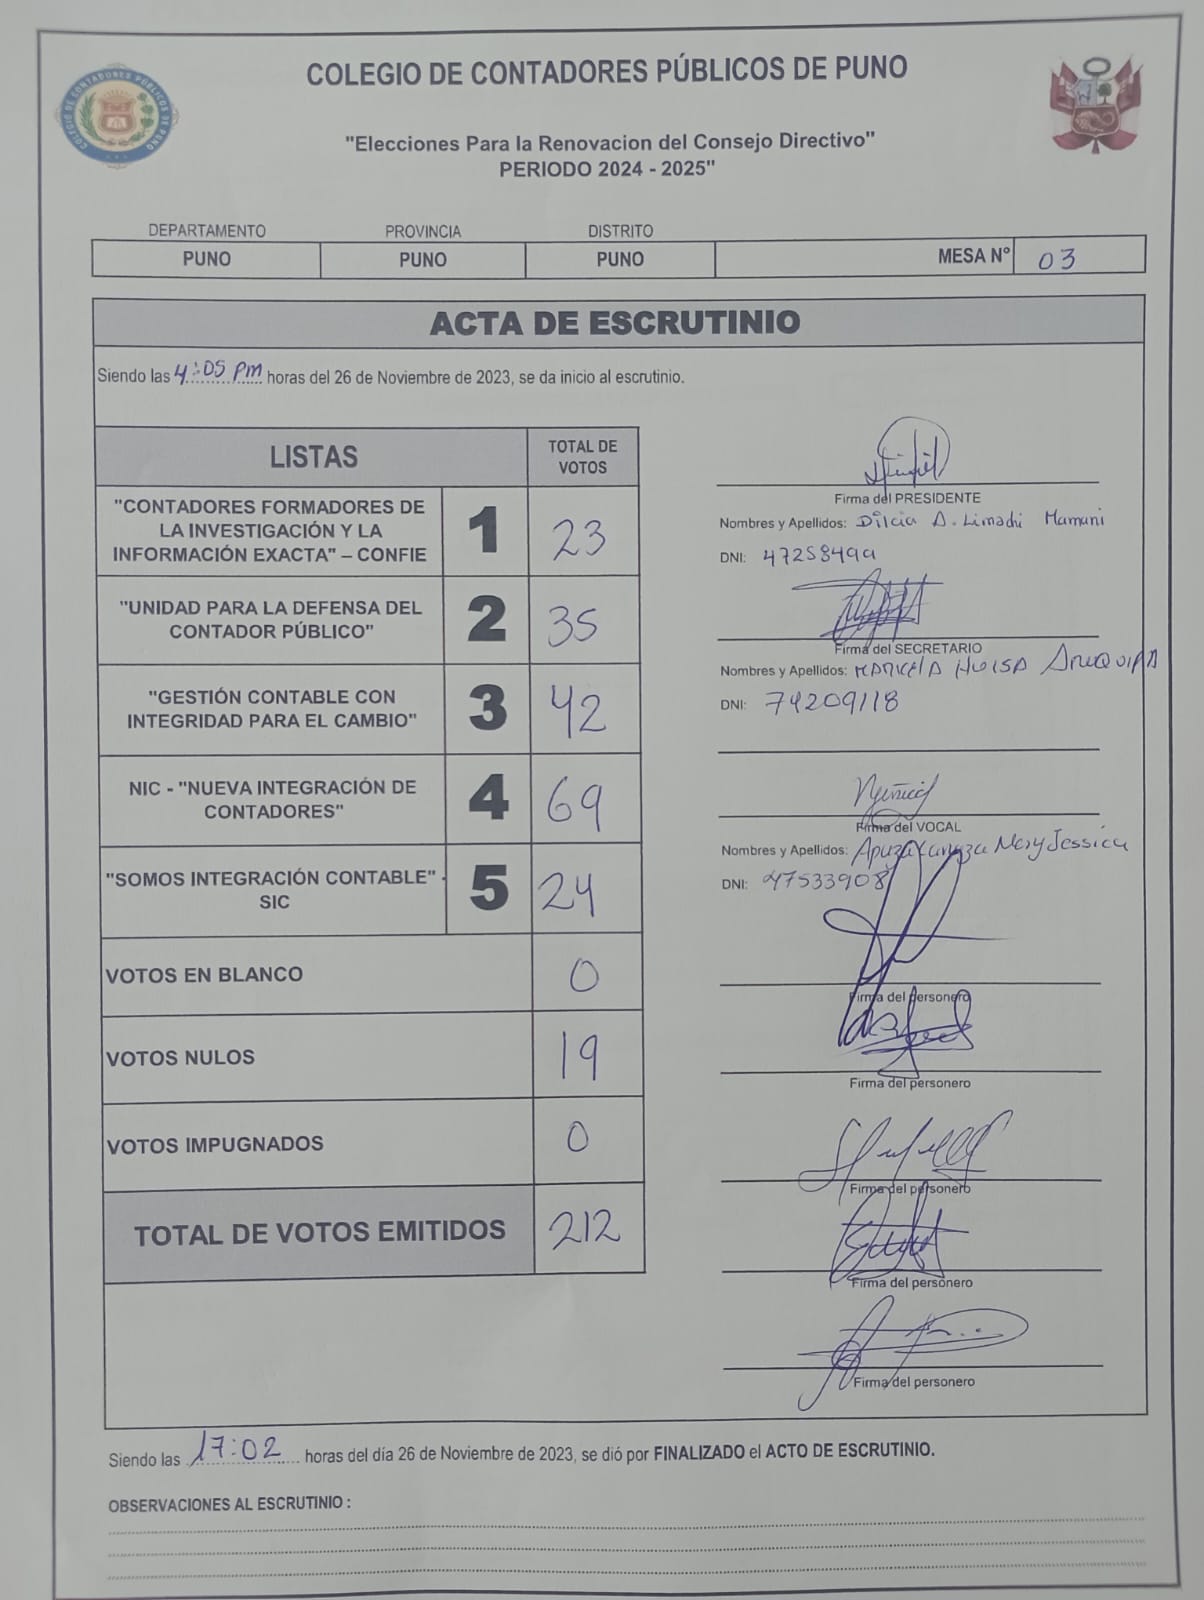 COLEGIO DE CONTADORES PÚBLICOS DE PUNO
COLEGIO DE CONTADORES PÚBLICOS DE PUNO
"Elecciones Para la Renovacion del Consejo Directivo"
PERIODO 2024 - 2025"
DEPARTAMENTO PROVINCIA DISTRITO
PUNO PUNO PUNO MESA N° 03
ACTA DE ESCRUTINIO
Siendo las 4:05 pm horas del 26 de Noviembre de 2023, se da inicio al escrutinio.
LISTAS TOTAL DE VOTOS
"CONTADORES FORMADORES DE
LA INVESTIGACIÓN Y LA
INFORMACIÓN EXACTA" – CONFIE
1 23
"UNIDAD PARA LA DEFENSA DEL
CONTADOR PÚBLICO"
2 35
"GESTIÓN CONTABLE CON
INTEGRIDAD PARA EL CAMBIO"
3 42
NIC - "NUEVA INTEGRACIÓN DE
CONTADORES"
4 69
"SOMOS INTEGRACIÓN CONTABLE" -
SIC
5 24
VOTOS EN BLANCO 0
VOTOS NULOS 19
VOTOS IMPUGNADOS 0
TOTAL DE VOTOS EMITIDOS 212
Firma del PRESIDENTE
Nombres y Apellidos: Dilcia A. Limachi Mamani
DNI:
Firma del SECRETARIO
Nombres y Apellidos: MARICELA HUISA AREQUIPA
DNI: 74209118
Firma del VOCAL
Nombres y Apellidos: Apaza Mery Jessica
DNI: 47533908
Firma del personero
Firma del personero
Firma del personero
Firma del personero
Firma del personero
Siendo las 17:02 horas del día 26 de Noviembre de 2023, se dió por FINALIZADO el ACTO DE ESCRUTINIO.
OBSERVACIONES AL ESCRUTINIO :